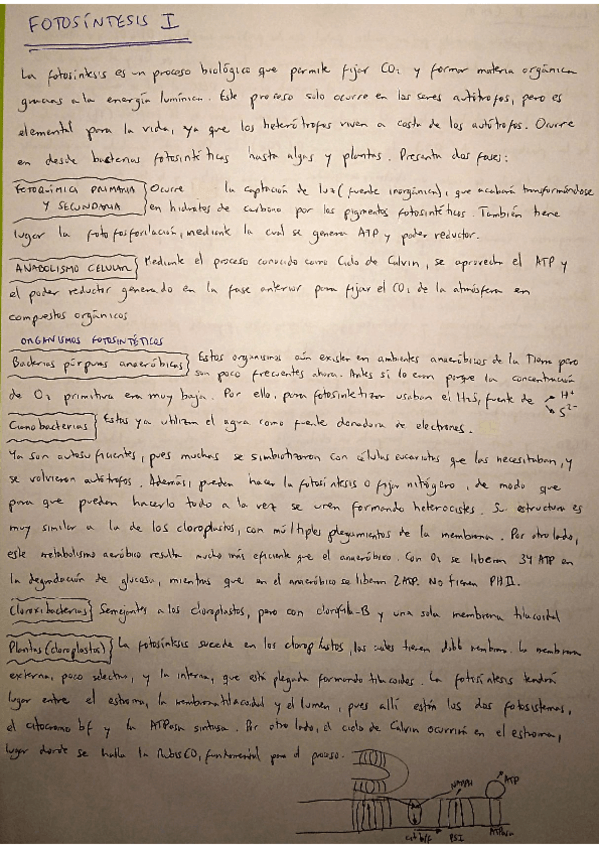 FOTOSÍNTESIS I
La fotosíntesis es un proceso biológico que permite fijar CO2 y formar materia orgánica
gracias a la energía lumínica. Este proceso solo ocurre en los seres autótrofos, pero es
elemental para la vida, ya que los heterótrofos viven a costa de los autótrofos. Ocurre
en desde bacterias fotosintéticas hasta algas y plantas. Presenta dos fases:
FOTOQUÍMICA PRIMARIA Y SECUNDARIA } Ocurre la captación de luz (fuente inorgánica), que acabará transformándose
en hidratos de carbono por los pigmentos fotosintéticos. También tiene
lugar la fotofosforilación, mediante la cual se genera ATP y poder reductor.
ANABOLISMO CELULAR } Mediante el proceso conocido como Ciclo de Calvin, se aprovecha el ATP y
el poder reductor generado en la fase anterior para fijar el CO2 de la atmósfera en
compuestos orgánicos
ORGANISMOS FOTOSINTÉTICOS
Bacterias púrpuras anaeróbicas } Estos organismos aún existen en ambientes anaeróbicos de la Tierra pero
son poco frecuentes ahora. Antes si lo eran porque la concentración
de O2 primitiva era muy baja. Por ello, para fotosintetizar usaban el H2S, fuente de H+
S2-
Cianobacterias } Estas ya utilizan el agua como fuente donadora de electrones.
Ya son autosuficientes, pues muchas se simbiotizaron con células eucariotas que las necesitaban, y
se volvieron autótrofos. Además, pueden hacer la fotosíntesis o fijar nitrógeno, de modo que
para que puedan hacerlo todo a la vez se unen formando heterocistes. Su estructura es
muy similar a la de los cloroplastos, con múltiples plegamientos de la membrana. Por otro lado,
este metabolismo aeróbico resulta mucho más eficiente que el anaeróbico. Con O2 se liberan 34 ATP en
la degradación de glucosa, mientras que en el anaeróbico se liberan 2 ATP. No tienen PHII.
Cloroxibacterias } Semejantes a los cloroplastos, pero con clorofila-B y una sola membrana tilacoidal
Plantas (cloroplastos) } La fotosíntesis sucede en los cloroplastos, los cuales tienen doble membrana. La membrana
externa, poco selectiva, y la interna, que está plegada formando tilacoides. La fotosíntesis tendrá
lugar entre el estroma, la membrana tilacoidal y el lumen, pues allí están los dos fotosistemas,
el citocromo bf y la ATPasa sintasa. Por otro lado, el ciclo de Calvin ocurrirá en el estroma,
lugar donde se halla la RubisCO, fundamental para el proceso.
NADPH ATP
cit b6f PSI ATPasa